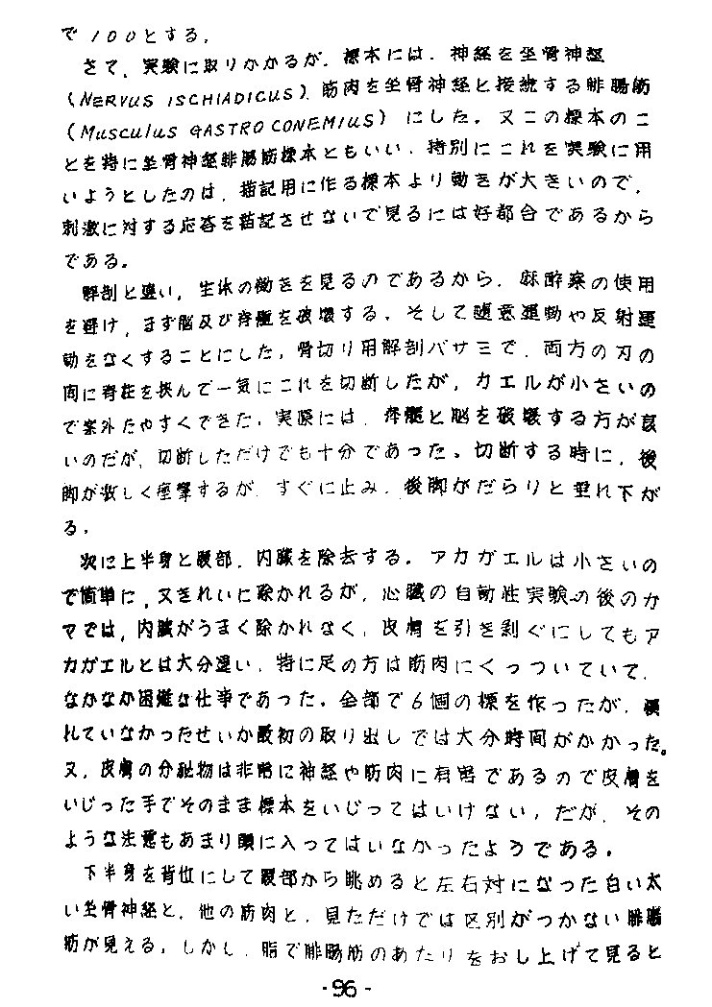 で100とする。
さて、実験に取りかかるが、標本には、神経を坐骨神経
(NERVUS ISCHIADICUS)、筋肉を坐骨神経と接続する腓腸筋
(Musculus GASTROCONEMIUS)にした。又この標本のこ
とを特に坐骨神経腓腸筋標本ともいい、特別にこれを実験に用
いようとしたのは、描記用に作る標本より動きが大きいので、
刺激に対する応答を描記させないで見るには好都合であるから
である。
解剖と違い、生体の働きを見るのであるから、麻酔薬の使用
を避け、まず脳及び脊髄を破壊する。そして随意運動や反射運
動をなくすることにした。骨切り用解剖バサミで、両方の刃の
間に脊柱を挟んで一気にこれを切断したが、カエルが小さいの
で案外たやすくできた。実際には、脊髄と脳を破壊する方が良
いのだが、切断しただけでも十分であった。切断する時に、後
脚が激しく痙攣するが、すぐに止み、後脚がだらりと垂れ下が
る。
次に上半身と腹部、内臓を除去する。アカガエルは小さいの
で簡単に、又きれいに除かれるが、心臓の自動性実験の後のガ
マでは、内臓がうまく除かれなく、皮膚を引き剥ぐにしてもア
カガエルとは大分違い、特に足の方は筋肉にくっついていて、
なかなか困難な仕事であった。全部で6個の標を作ったが、慣
れていなかったせいか最初の取り出しでは大分時間がかかった。
又、皮膚の分泌物は非常に神経や筋肉に有害であるので皮膚を
いじった手でそのまま標本をいじってはいけない。だが、その
ような注意もあまり頭に入ってはいなかったようである。
下半身を背位にして腹部から眺めると左右対になった白い太
い坐骨神経と、他の筋肉と、見ただけでは区別がつかない腓腸
筋が見える。しかし、指で腓腸筋のあたりをおし上げて見ると
-96-